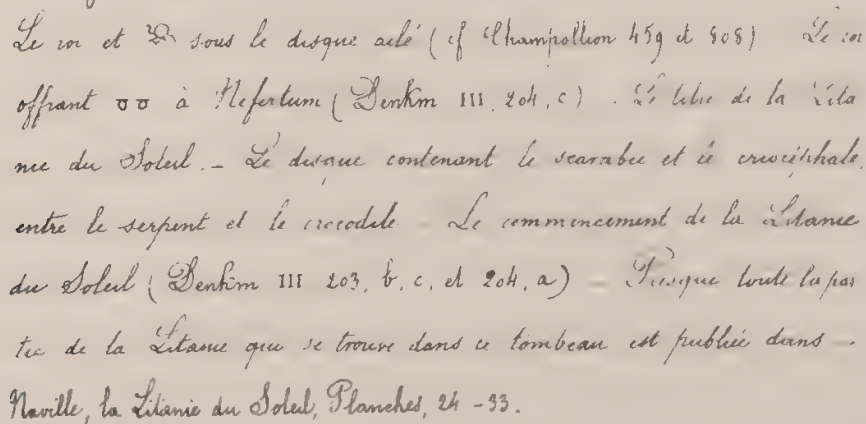 Le roi et 𓆣 sous le disque ailé (cf Champollion 459 et 808) Le roi
offrant 𓏌𓏌 à Nefertum (Denkm III, 204, c). Le titre de la Lita
nie du Soleil. - Le disque contenant le scarabée et le criocéphale,
entre le serpent et le crocodile - Le commencement de la Litanie
du Soleil (Denkm III 203, b, c, et 204, a) - Presque toute la par
tie de la Litanie qui se trouve dans ce tombeau est publiée dans.
Naville, la Litanie du Soleil, Planches, 24 - 33.